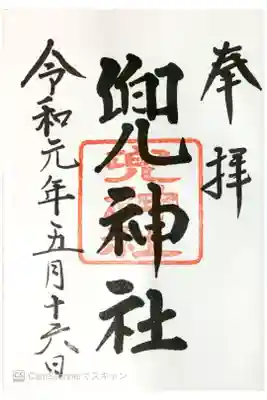 奉拝
兜神社
兜神社
令和元年五月十六日
CamScannerでスキャン